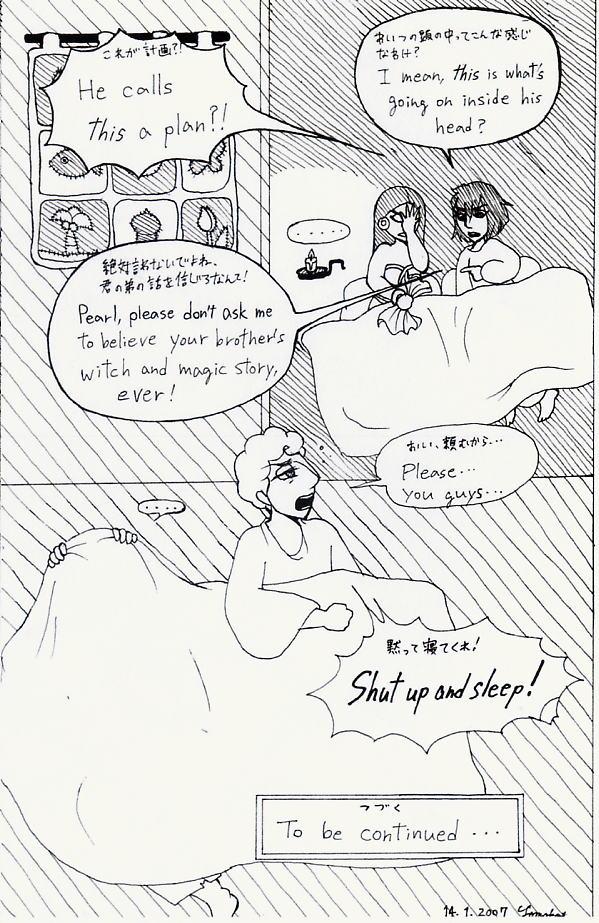 これが計画?!
He calls
this a plan?!
あいつの頭の中ってこんな感じ
なわけ?
I mean, this is what's
going on inside his
head?
......
絶対訊わないでよね、
君の弟の話を信じろなんて!
Pearl, please don't ask me
to believe your brother's
witch and magic story,
ever!
おいい、頼むから…
Please...
you guys...
.....
黙って寝てくれ!
Shut up and sleep!
つづく
To be continued ...
14. 1. 2007